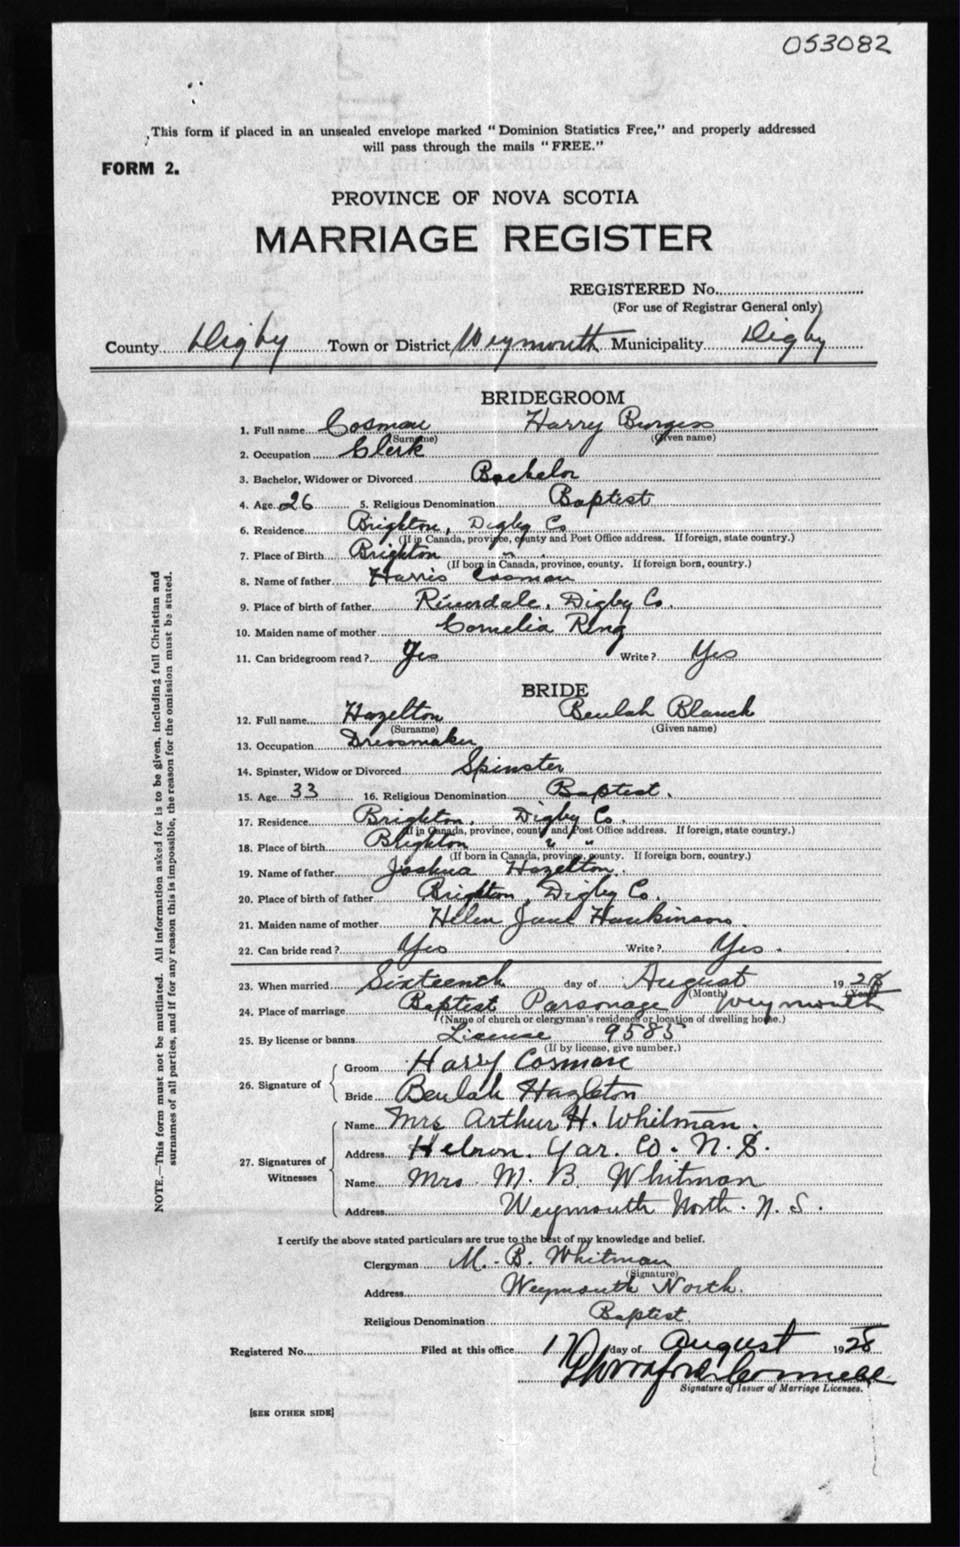 053082
This form if placed in an unsealed envelope marked "Dominion Statistics Free," and properly addressed
will pass through the mails "FREE."
FORM 2.
PROVINCE OF NOVA SCOTIA
MARRIAGE REGISTER
REGISTERED No.
(For use of Registrar General only)
County Digby Town or District Weymouth Municipality Digby
BRIDEGROOM
1. Full name Cosman Harry Burgess
(Surname) (Given name)
2. Occupation Clerk
3. Bachelor, Widower or Divorced Bachelor
4. Age 26 5. Religious Denomination Baptist
6. Residence Brighton, Digby Co
(If in Canada, province, county and Post Office address. If foreign, state country.)
7. Place of Birth Brighton " "
(If born in Canada, province, county. If foreign born, country.)
8. Name of father Harris Cosman
9. Place of birth of father Riverdale, Digby Co.
10. Maiden name of mother Cornelia Ring
11. Can bridegroom read? Yes Write? Yes
BRIDE
12. Full name Hazelton Beulah Blanch
(Surname) (Given name)
13. Occupation Dressmaker
14. Spinster, Widow or Divorced Spinster
15. Age 33 16. Religious Denomination Baptist.
17. Residence Brighton, Digby Co.
(If in Canada, province, county and Post Office address. If foreign, state country.)
18. Place of birth Brighton " "
(If born in Canada, province, county. If foreign born, country.)
19. Name of father Joshua Hazelton.
20. Place of birth of father Brighton, Digby Co.
21. Maiden name of mother Helen Jane Hankinson.
22. Can bride read? Yes Write? Yes.
23. When married Sixteenth day of August 1928
(Month) (Year)
24. Place of marriage Baptist Parsonage Weymouth
(Name of church or clergyman's residence or location of dwelling home.)
25. By license or banns License 9585
(If by license, give number.)
26. Signature of
Groom Harry Cosman
Bride Beulah Hazleton
27. Signatures of Witnesses
Name Mrs Arthur H. Whitman.
Address Hebron. Yar. Co. N. S.
Name Mrs. M. B. Whitman
Address Weymouth North. N. S.
I certify the above stated particulars are true to the best of my knowledge and belief.
Clergyman M. B. Whitman
(Signature)
Address Weymouth North.
Religious Denomination Baptist.
Registered No. Filed at this office 17 day of August 1928
Signature of Issuer of Marriage Licenses.
[SEE OTHER SIDE]
NOTE.—This form must not be mutilated. All information asked for is to be given, including full Christian and
surnames of all parties, and if for any reason this is impossible, the reason for the omission must be stated.